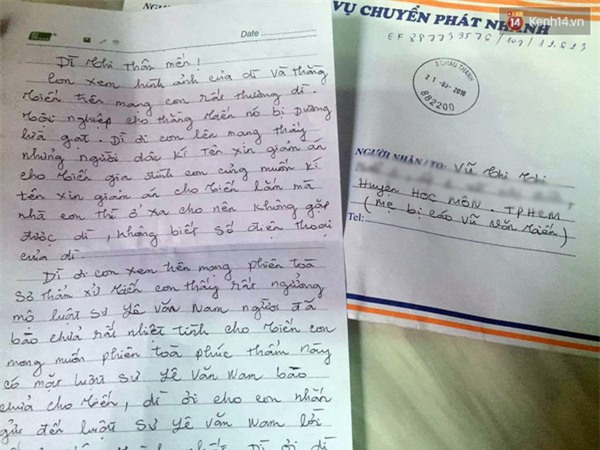 Date
Dì Thi Thân mến !
Con xem hình ảnh của dì và thằng
Tiến trên mạng con rất thương dì.
Tội nghiệp cho thằng Tiến nó bị Dương
lừa gạt. Dì ơi con lên mạng thấy
những người dân kí tên xin giảm án
cho Tiến gia đình con cũng muốn kí
tên xin giảm án cho Tiến lắm mà
nhà con thì ở xa cho nên không gặp
được dì, không biết số điện thoại
của dì.
Dì ơi con xem trên mạng phiên toà
Sơ thẩm xử Tiến con thấy rất ngưỡng
mộ luật sư Lê Văn Nam người đã
bào chữa rất nhiệt tình cho Tiến con
mong muốn phiên toà phúc thẩm này
có mặt luật sư Lê Văn Nam bào
chữa cho Tiến, dì ơi cho con nhắn
gửi đến luật sư Lê Văn Nam lời
Dì ơi dì
14 Kenh14.vn
VỤ CHUYỂN PHÁT NHANH
CHAU THANH
882200
NGƯỜI NHẬN/TO: Vũ Thị Thi
Huyện Hóc Môn. TPHCM
(Mẹ bị cáo Vũ Văn Tiến)
Tel: